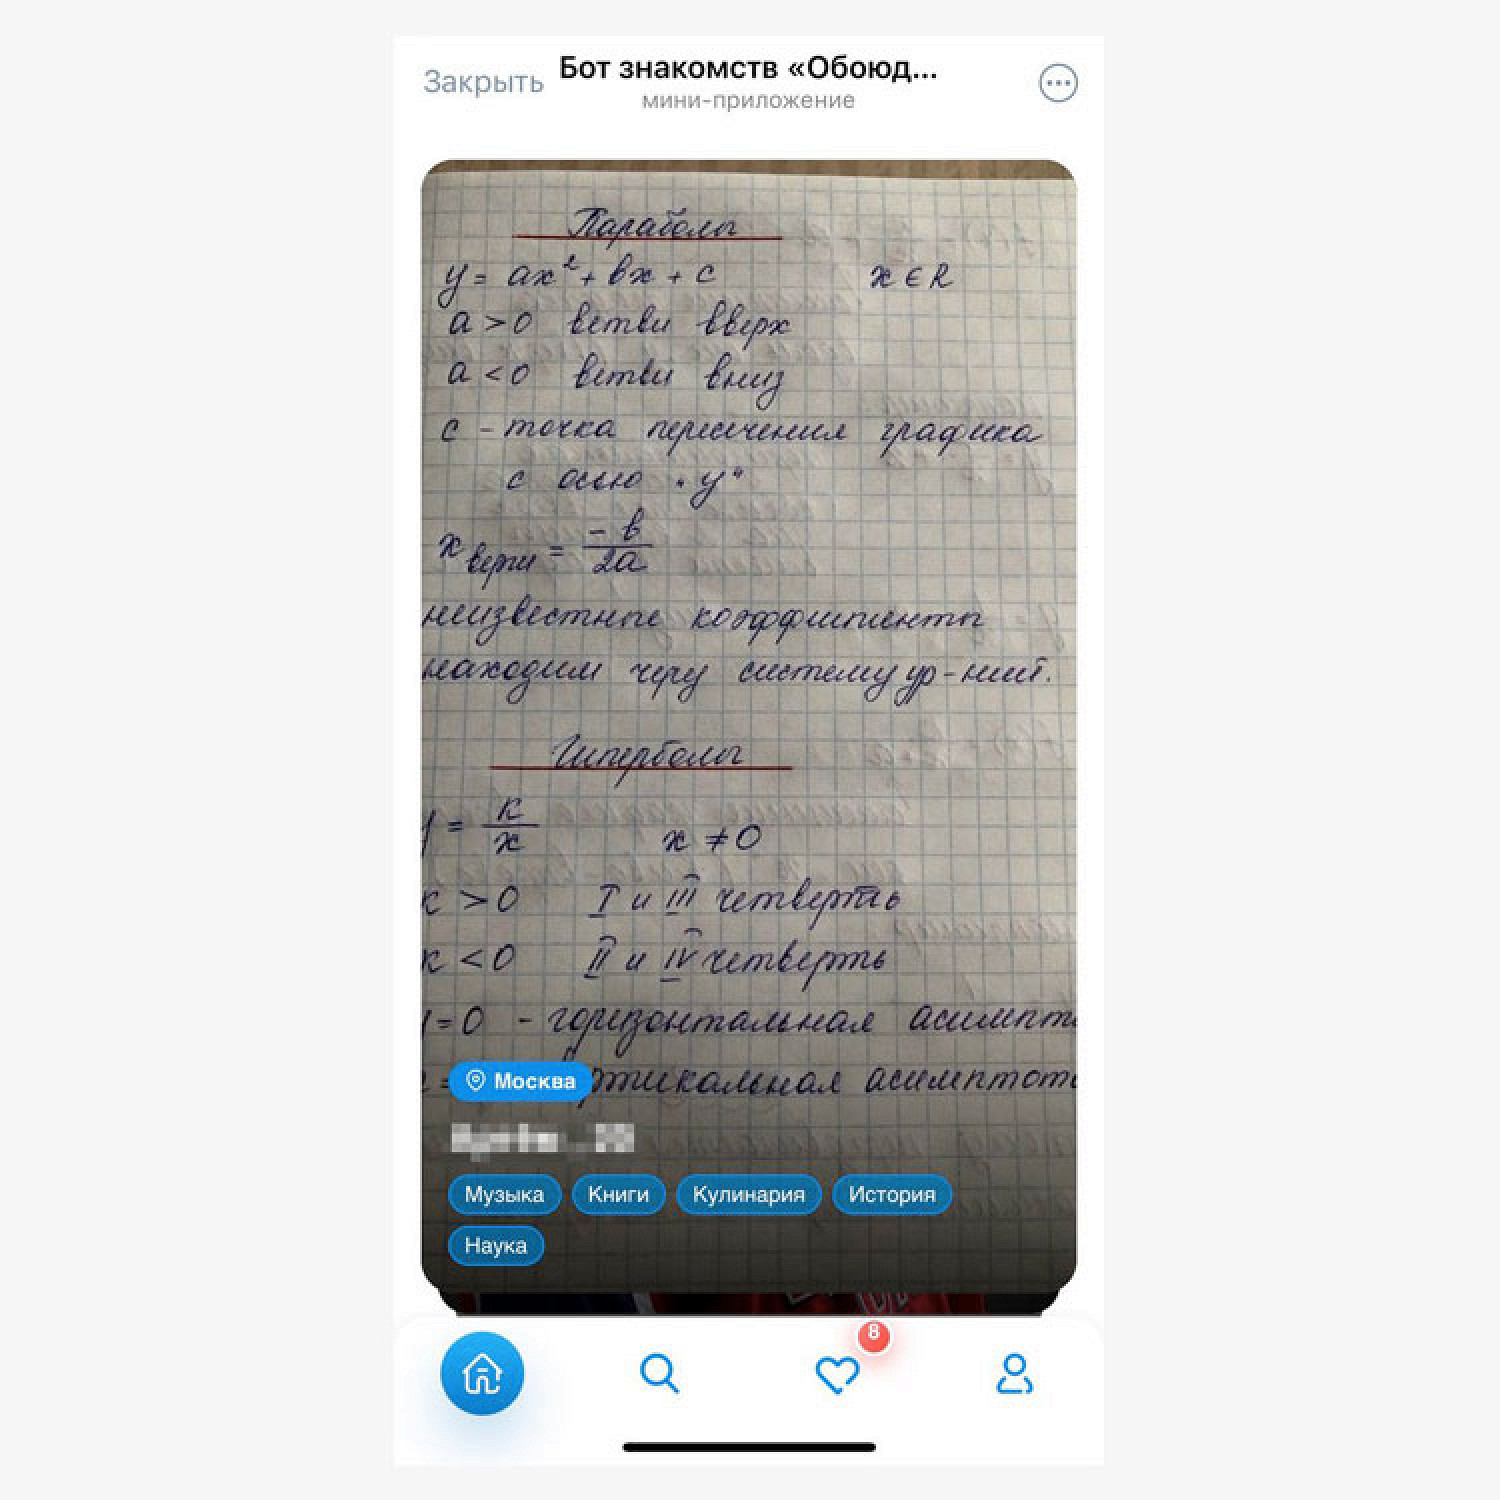 Закрыть
Бот знакомств «Обоюд...
мини-приложение
Параболы
y = ax² + bx + c x ∈ R
a > 0 ветви вверх
a < 0 ветви вниз
c - точка пересечения графика
с осью "y"
x верш = -b/2a
неизвестные коэффициенты
находим через систему ур-ний.
Гиперболы
y = к/x x ≠ 0
к > 0 I и III четверть
к < 0 II и IV четверть
y = 0 - горизонтальная асимпто
асимптота
Москва
Музыка Книги Кулинария История
Наука
8